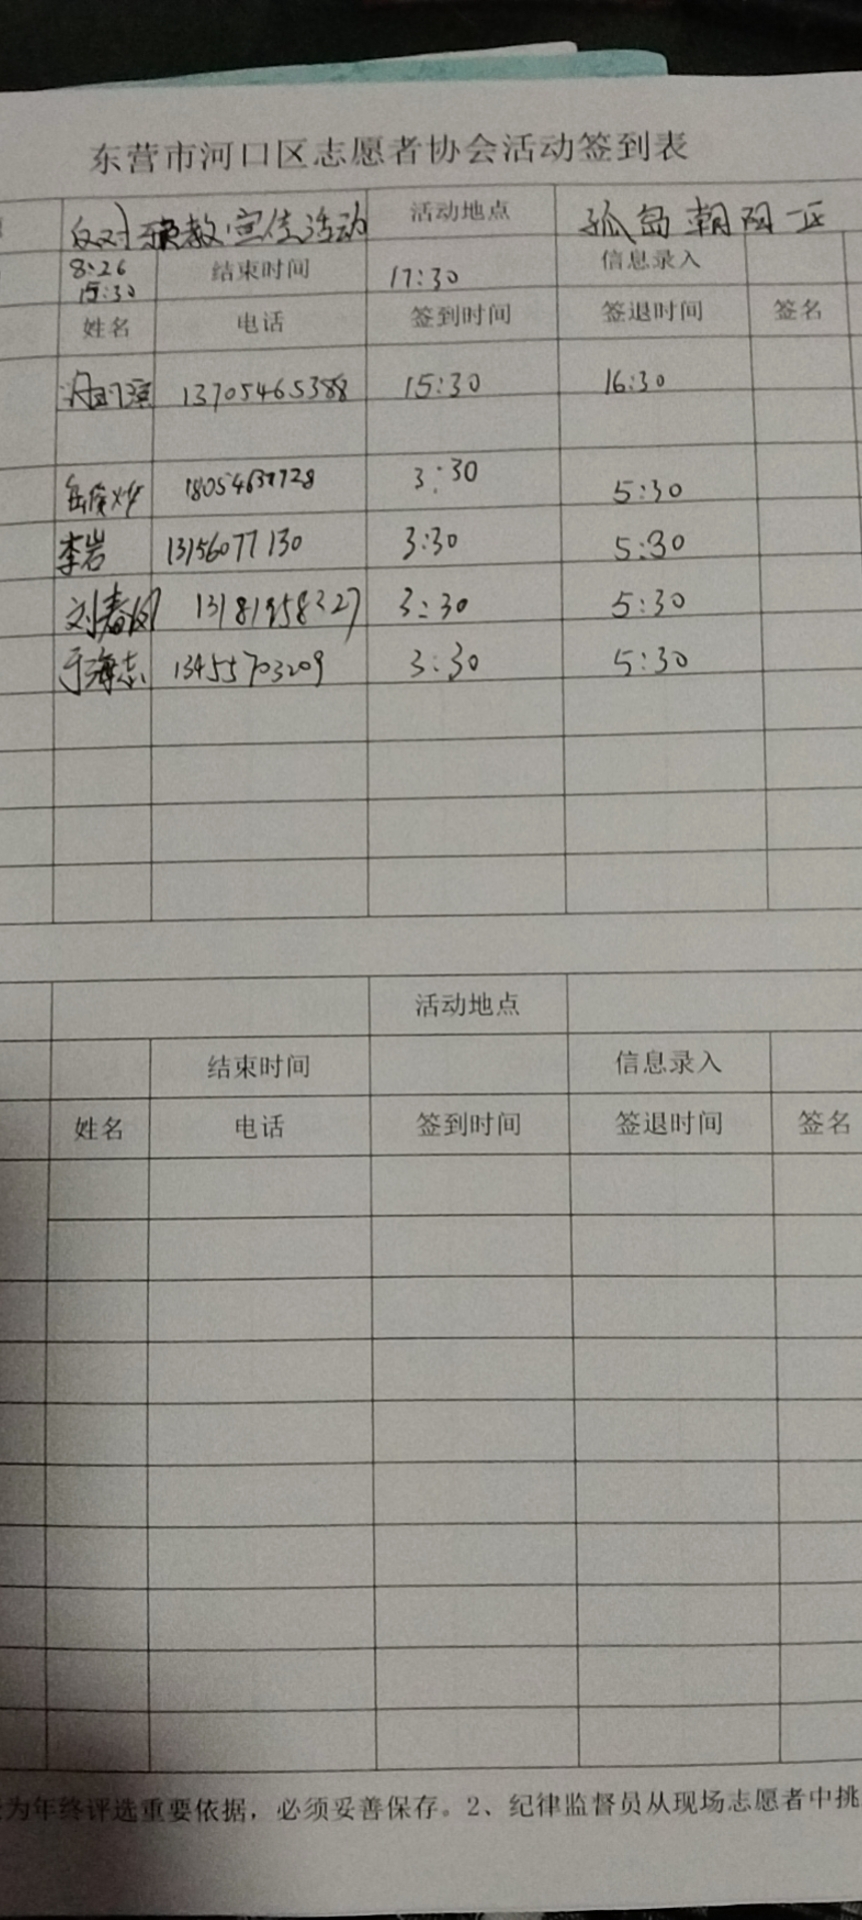 东营市河口区志愿者协会活动签到表
反对邪教宣传活动 活动地点 孤岛朝阳一区
8:26 15:30 结束时间 17:30 信息录入
姓名 电话 签到时间 签退时间 签名
13705465388 15:30 16:30
18054637728 3:30 5:30
李岩 13156077130 3:30 5:30
刘春 13181958327 3:30 5:30
于海志 13455703209 3:30 5:30
活动地点
结束时间 信息录入
姓名 电话 签到时间 签退时间 签名
为年终评选重要依据，必须妥善保存。2、纪律监督员从现场志愿者中挑